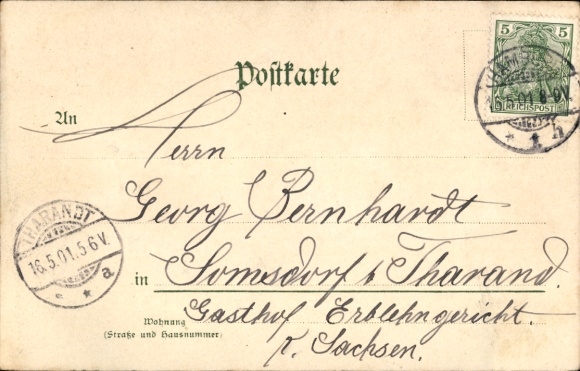 5 5
REICHSPOST
Postkarte
An
Herrn
Georg Bernhardt
THARANDT
16.5.01.5-6V.
* * a
in Somsdorf b Tharand.
Gasthof Erblehngericht.
Wohnung
(Straße und Hausnummer)
K. Sachsen.